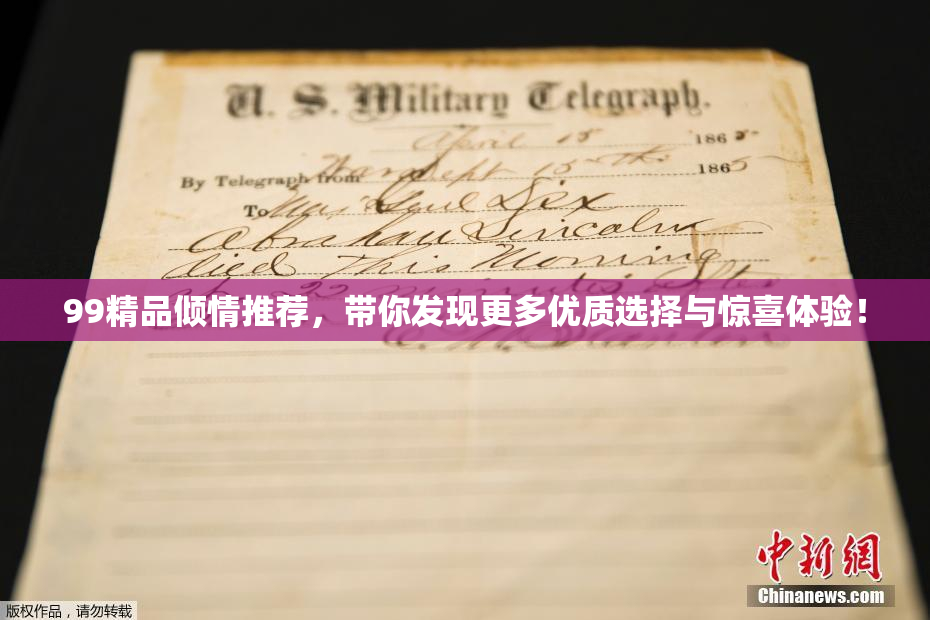 U. S. Military Telegraph.
April 15 1865
By Telegraph from War Dept 15th 1865
To Maj Genl Dix
Abraham Lincoln
died This Morning
at 22 minutes after
99精品倾情推荐，带你发现更多优质选择与惊喜体验！
E. M. Stanton
中新網
Chinanews.com
版权作品，请勿转载